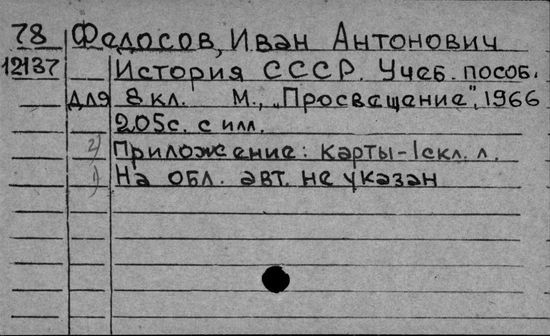 78 Федосов, Иван Антонович
12137 История СССР. Учеб. пособ.
для 8 кл. М., „Просвещение", 1966
205с. с илл.
2) Приложение: карты-1скл. л.
1) На обл. авт. не указан